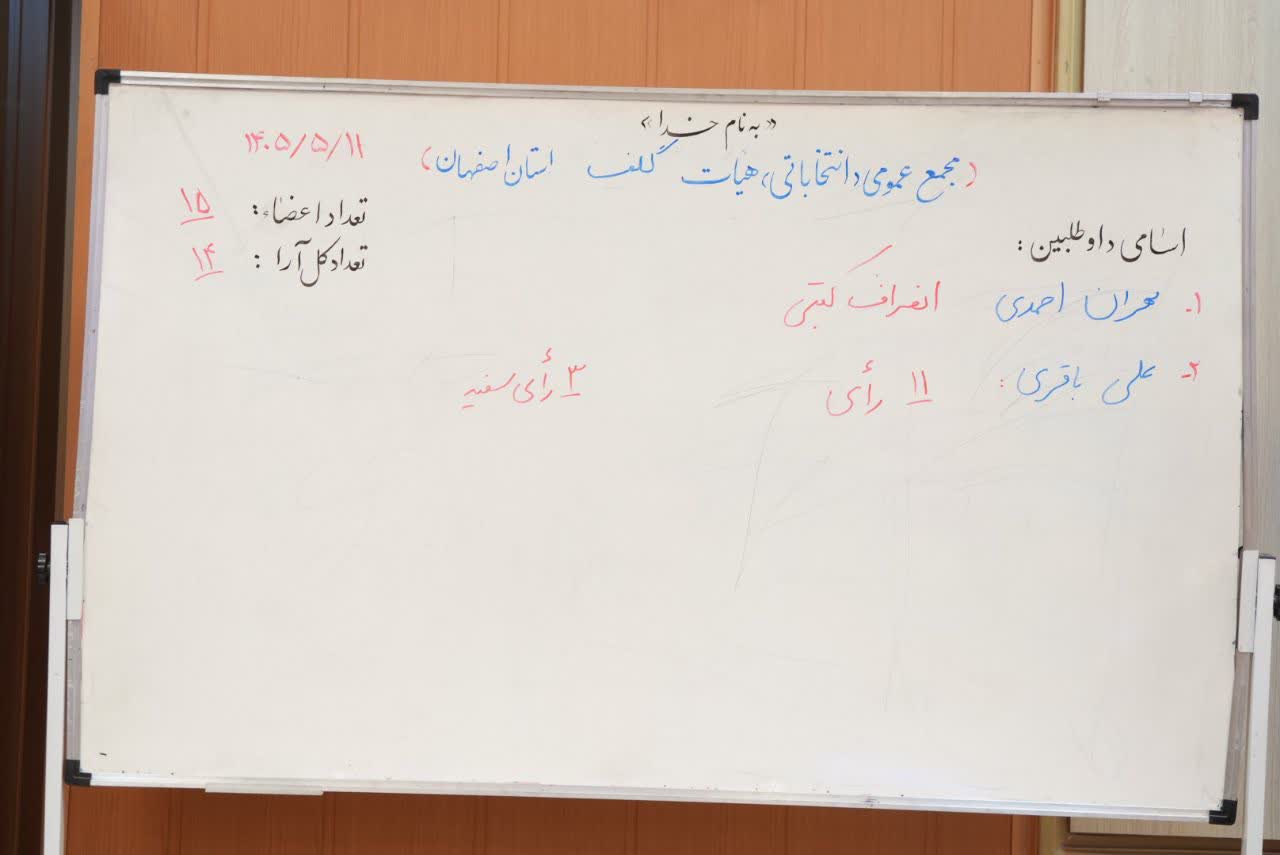 «به نام خدا»
(مجمع عمومی «انتخاباتی» هیأت گلف استان اصفهان)
۱۴۰۵/۵/۱۱
تعداد اعضاء: ۱۵
تعداد کل آرا: ۱۴
اسامی داوطلبین:
۱- مهران احمدی انصراف کتبی
۲- علی باقری: ۱۱ رأی ۳ رأی سفید